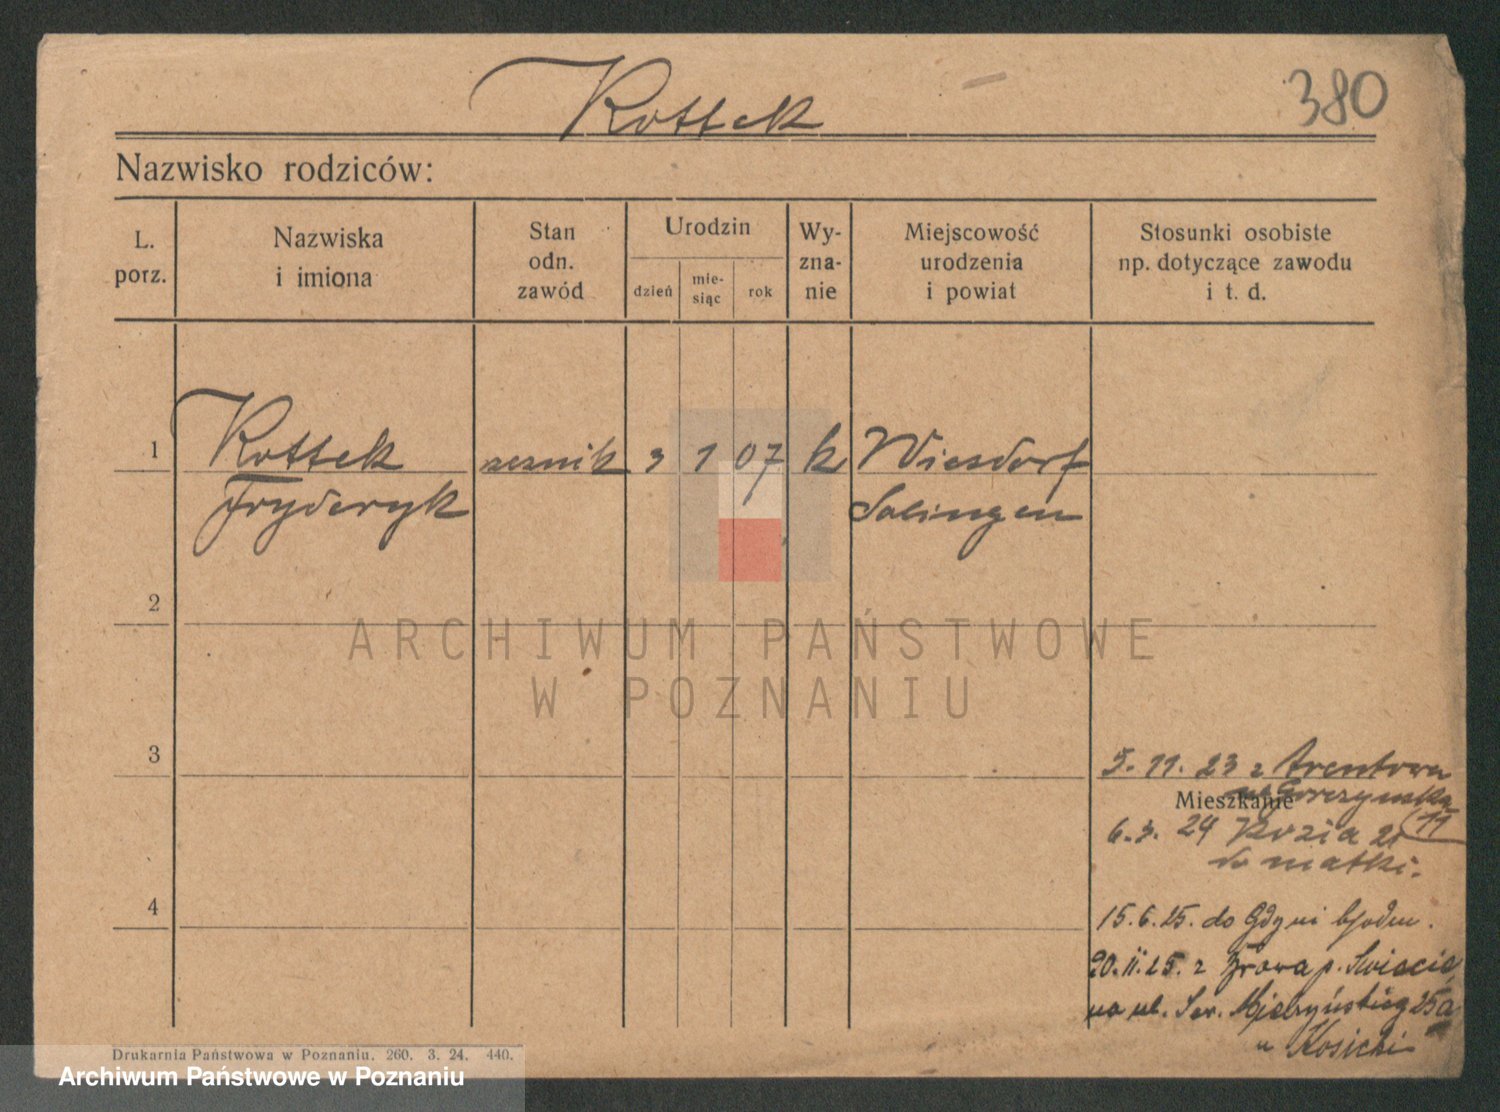 Kottek
380
Nazwisko rodziców:
L. porz.
Nazwiska i imiona
Stan odn. zawód
Urodzin
dzień
mie-siąc
rok
Wy-zna-nie
Miejscowość urodzenia i powiat
Stosunki osobiste np. dotyczące zawodu i t. d.
1 Kottek rzeźnik 3 1 07 k Wiesdorf
Fryderyk Solingen
2
ARCHIWUM PAŃSTWOWE
W POZNANIU
3
5. 11. 23 z
Mieszkanie Gorczyńska
11
6. 3. 24 Kozia 21
do matki.
4
15. 6. 25. do Gdyni
20. 11. 25. z p. Świecie
na ul. Sew. Mielżyńskieg 25a
u
Drukarnia Państwowa w Poznaniu. 260. 3. 24. 440.
Archiwum Państwowe w Poznaniu